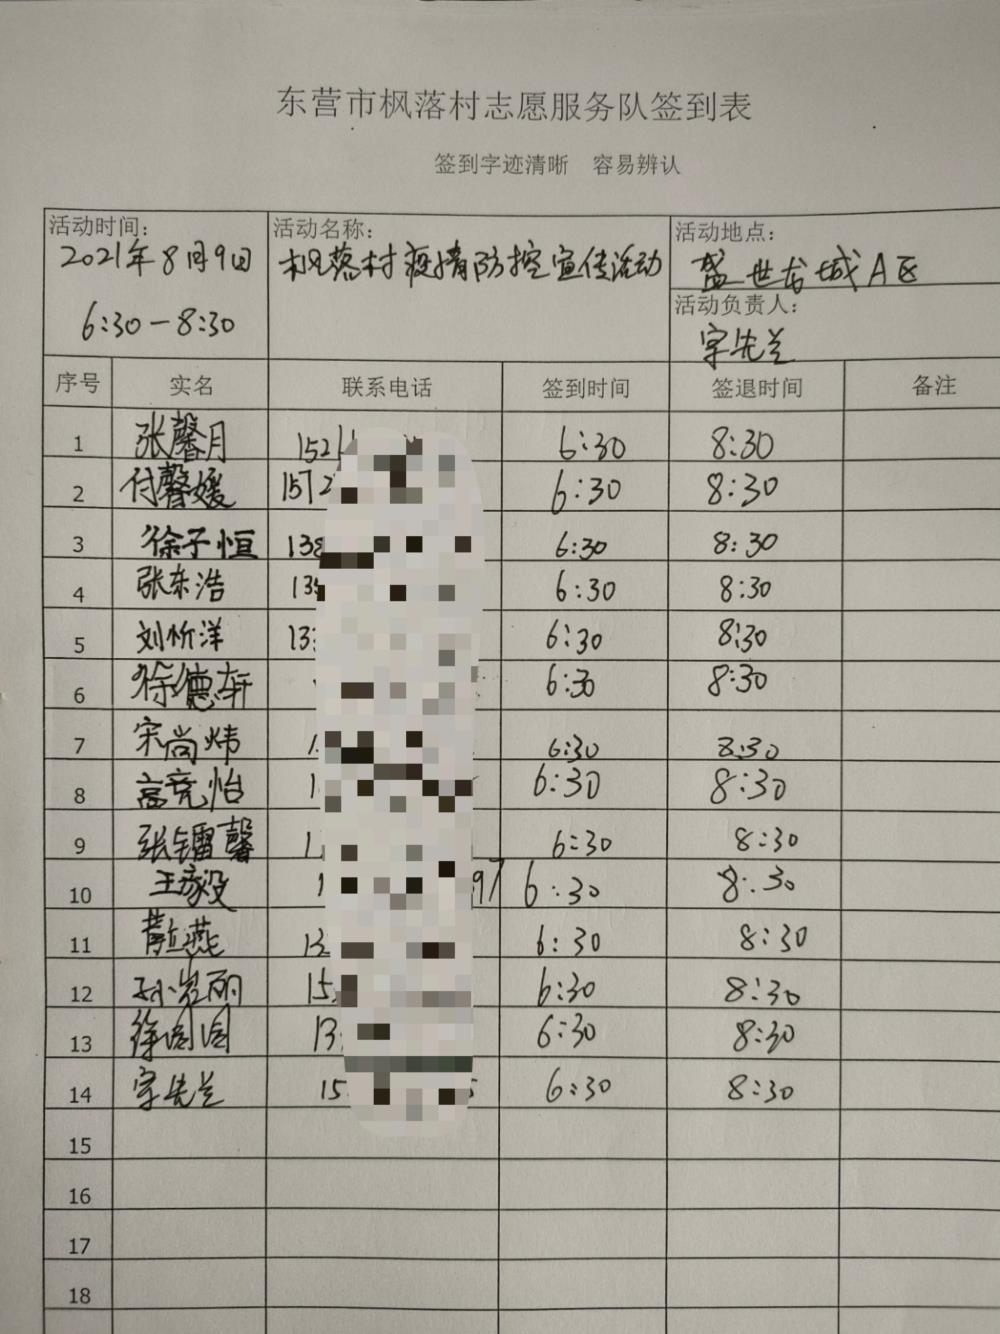 东营市枫落村志愿服务队签到表
签到字迹清晰 容易辨认
活动时间: 活动名称: 活动地点:
2021年8月9日 枫落村疫情防控宣传活动 盛世龙城A区
6:30-8:30 活动负责人:
先兰
序号 实名 联系电话 签到时间 签退时间 备注
1 张馨月 152 6:30 8:30
2 付馨媛 157 6:30 8:30
3 徐子恒 138 6:30 8:30
4 张东浩 13 6:30 8:30
5 刘忻洋 13 6:30 8:30
6 徐德轩 6:30 8:30
7 宋尚炜 1 6:30 8:30
8 高竞怡 1 6:30 8:30
9 张镭馨 1 6:30 8:30
10 王 1 97 6:30 8:30
11 燕 13 6:30 8:30
12 孙岩丽 15 6:30 8:30
13 徐圆圆 13 6:30 8:30
14 先兰 15 5 6:30 8:30
15
16
17
18